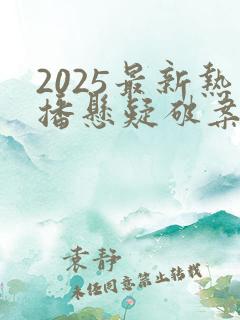 2025最新热
播悬疑破案
袁静
未经同意禁止转载